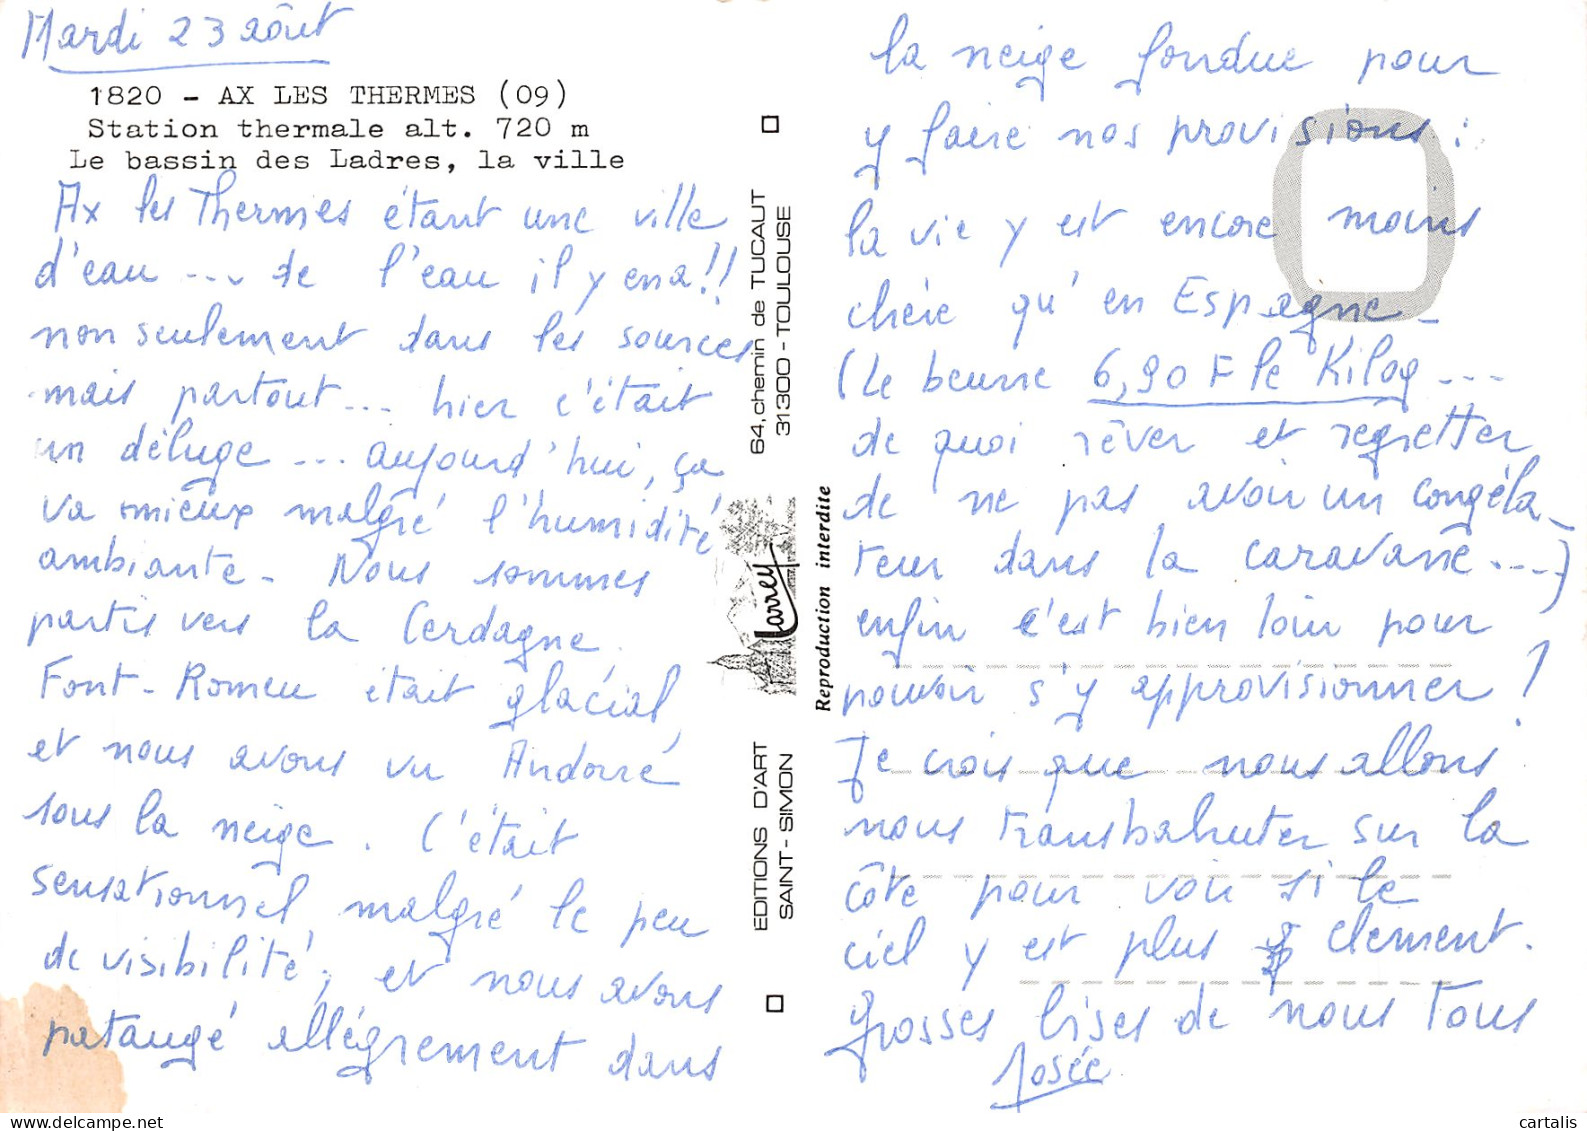 Mardi 23 août
1820 - AX LES THERMES (09)
Station thermale alt. 720 m
Le bassin des Ladres, la ville
Ax les Thermes étant une ville
d'eau --- de l'eau il y en a!!
non seulement dans les sources
mais partout --- hier c'était
un déluge --- aujourd'hui, ça
va mieux malgré l'humidité
ambiante - Nous sommes
partis vers la Cerdagne.
Font-Romeu était glacial,
et nous avons vu Andorré
sous la neige. C'était
sensationnel malgré le peu
de visibilité, et nous avons
pataugé allégrement dans
la neige fondue pour
y faire nos provisions :
la vie y est encore moins
chère qu'en Espagne -
(Le beurre 6,90 F le Kilog ---
de quoi rêver et regretter
de ne pas avoir un congéla-
teur dans la caravane ----)
enfin c'est bien loin pour
pouvoir s'y approvisionner !
Je crois que nous allons
nous transbahuter sur la
côte pour voir si le
ciel y est plus clement.
grosses bises de nous tous
Josée
EDITIONS D'ART 64, chemin de TUCAUT
SAINT-SIMON 31300 - TOULOUSE
Larrey
Reproduction interdite
delcampe.net
cartalis